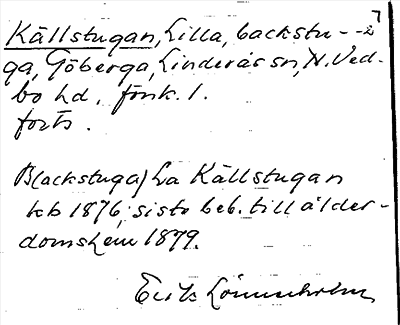 Källstugan, Lilla, backstu- -2
ga, Göberga, Linderås sn, N. Ved-
bo hd. förk. 1.
forts.
B(ackstuga) La Källstugan
kb 1876; sista beb. till ålder-
domshem 1879.
Erik Lönnerholm